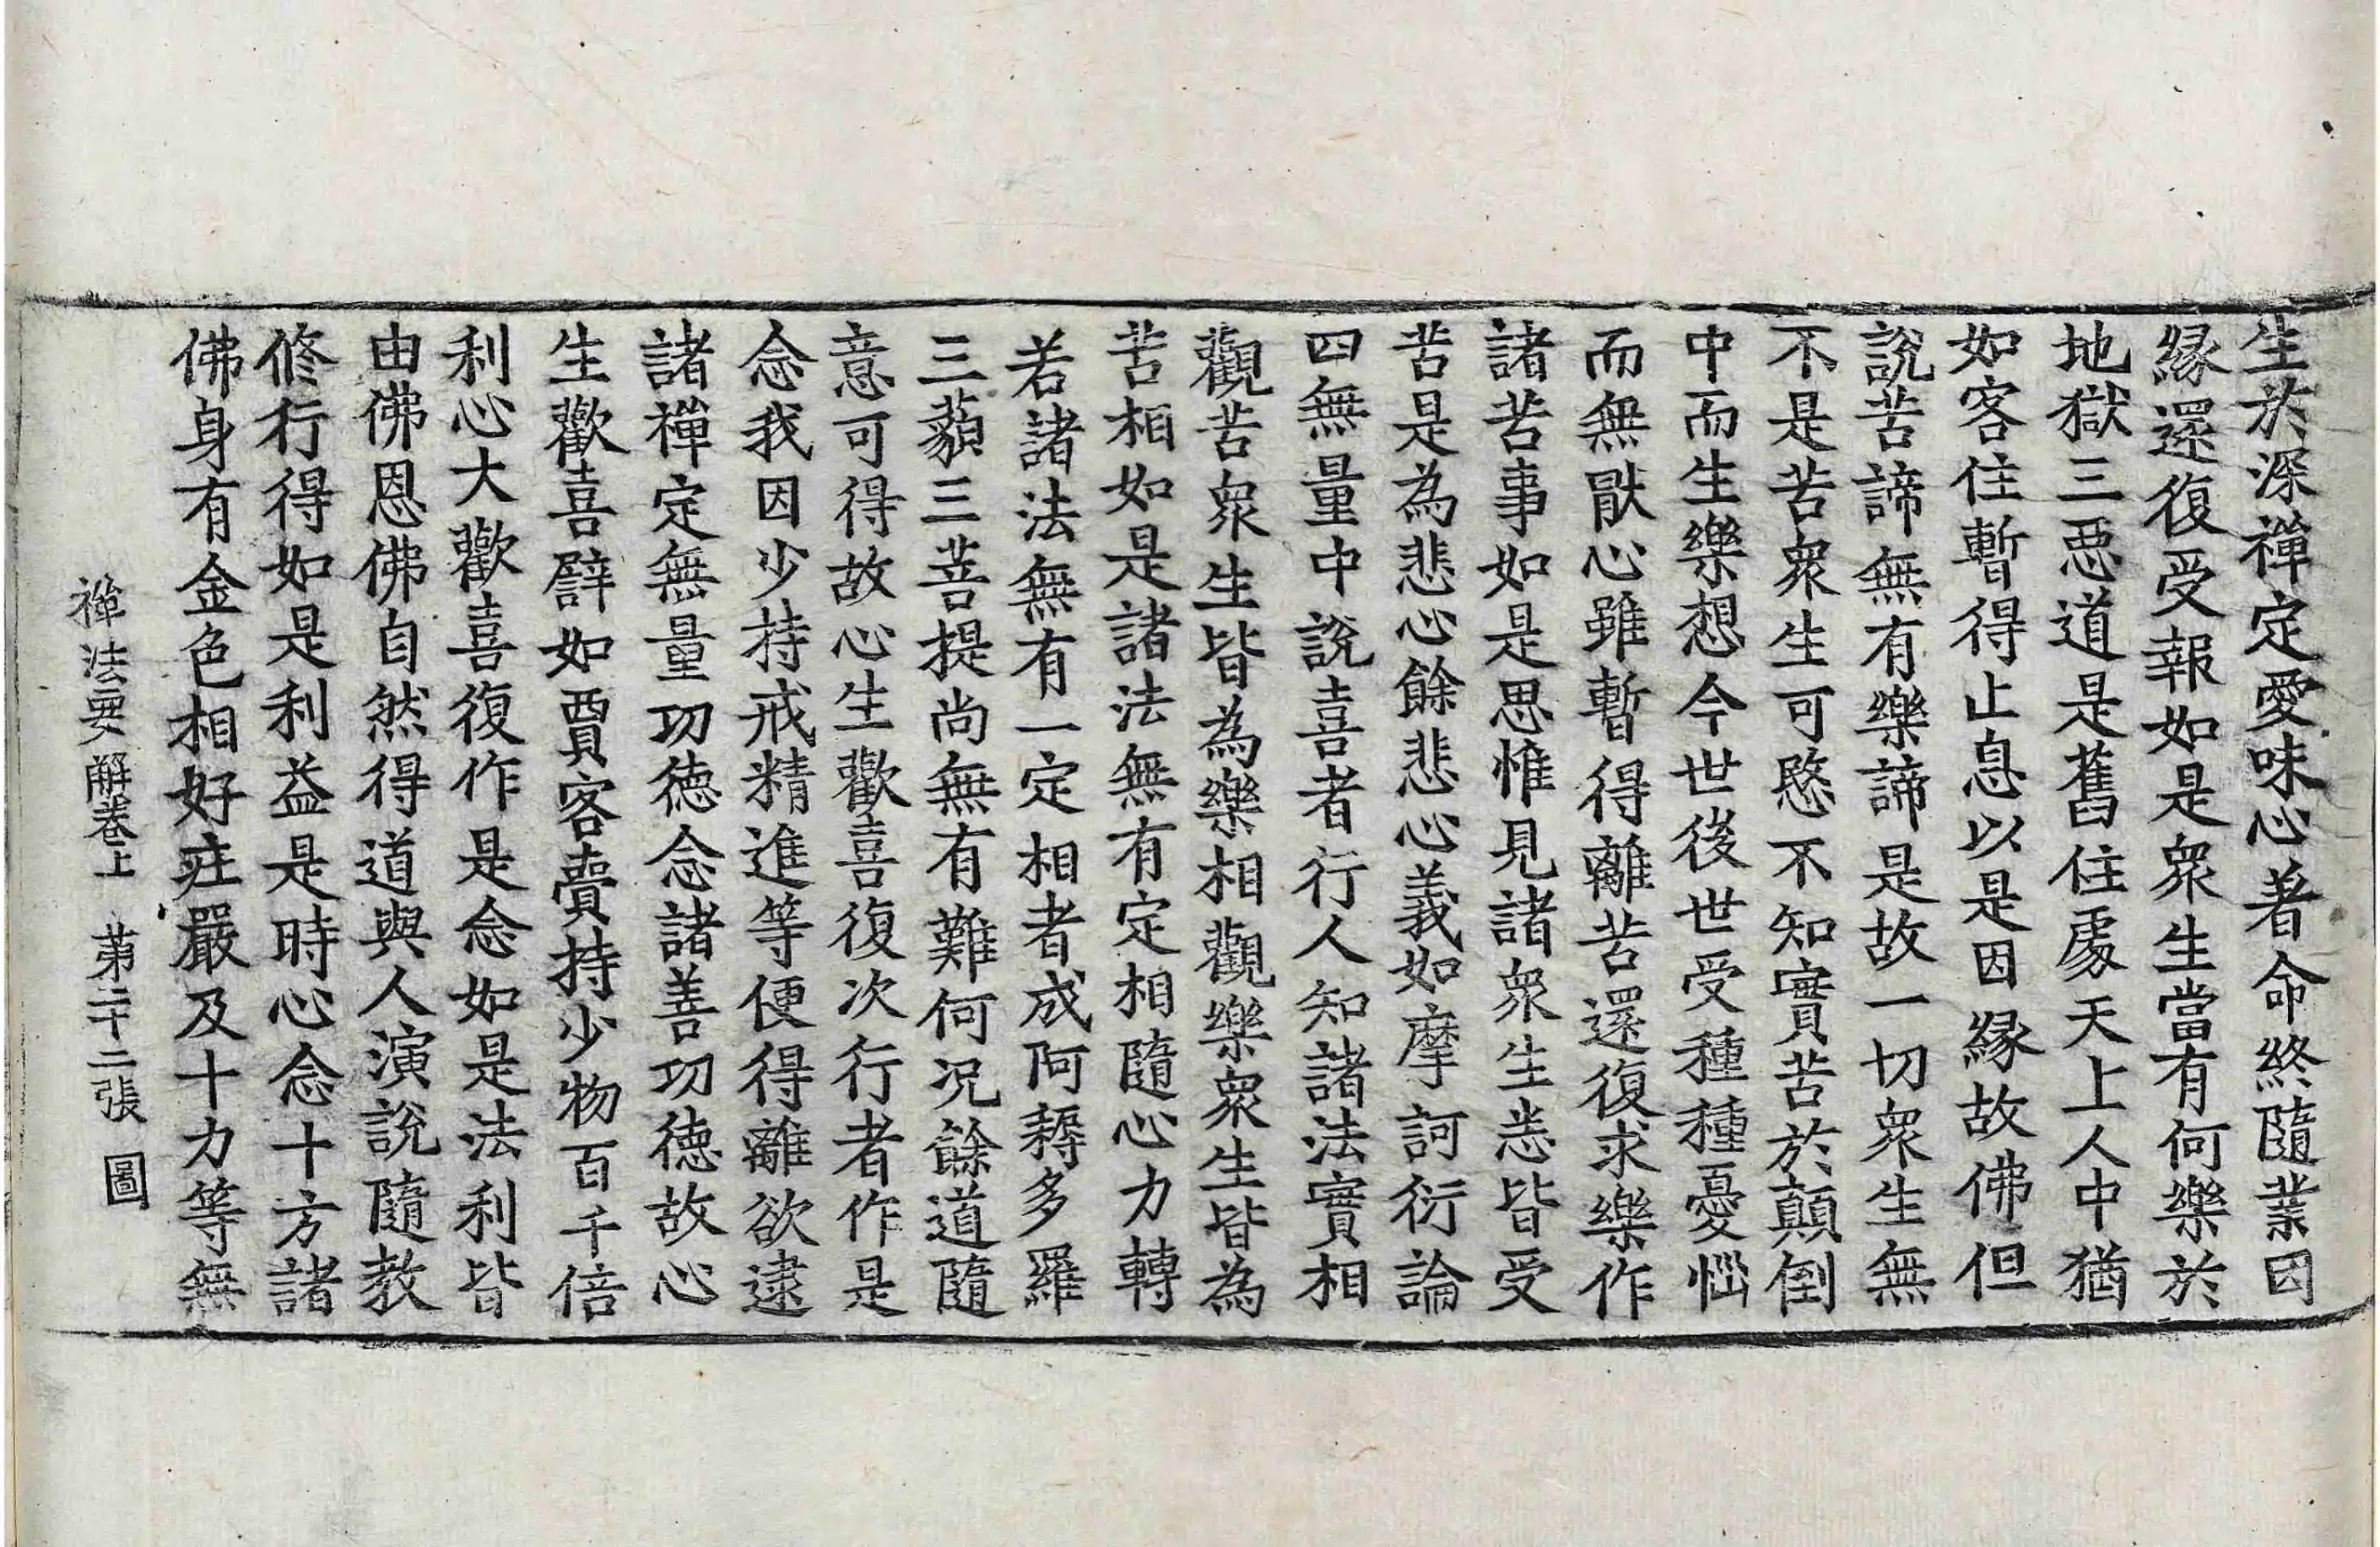 生於深禪定愛味心著命終隨業因
縁還復受報如是衆生當有何樂於
地獄三惡道是舊住處天上人中猶
如客住暫得止息以是因縁故佛但
說苦諦無有樂諦是故一切衆生無
不是苦衆生可愍不知實苦於顛倒
中而生樂想今世後世受種種憂惱
而無猒心雖暫得離苦還復求樂作
諸苦事如是思惟見諸衆生悉皆受
苦是為悲心餘悲心義如摩訶衍論
四無量中說喜者行人知諸法實相
觀苦衆生皆為樂相觀樂衆生皆為
苦相如是諸法無有定相隨心力轉
若諸法無有一定相者成阿耨多羅
三藐三菩提尚無有難何況餘道隨
意可得故心生歡喜復次行者作是
念我因少持戒精進等便得離欲逮
諸禪定無量功徳念諸善功徳故心
生歡喜譬如賈客賷持少物百千倍
利心大歡喜復作是念如是法利皆
由佛恩佛自然得道與人演說隨教
修行得如是利益是時心念十方諸
佛身有金色相好莊嚴及十力等無
禪法要解卷上　第二十二張　圖